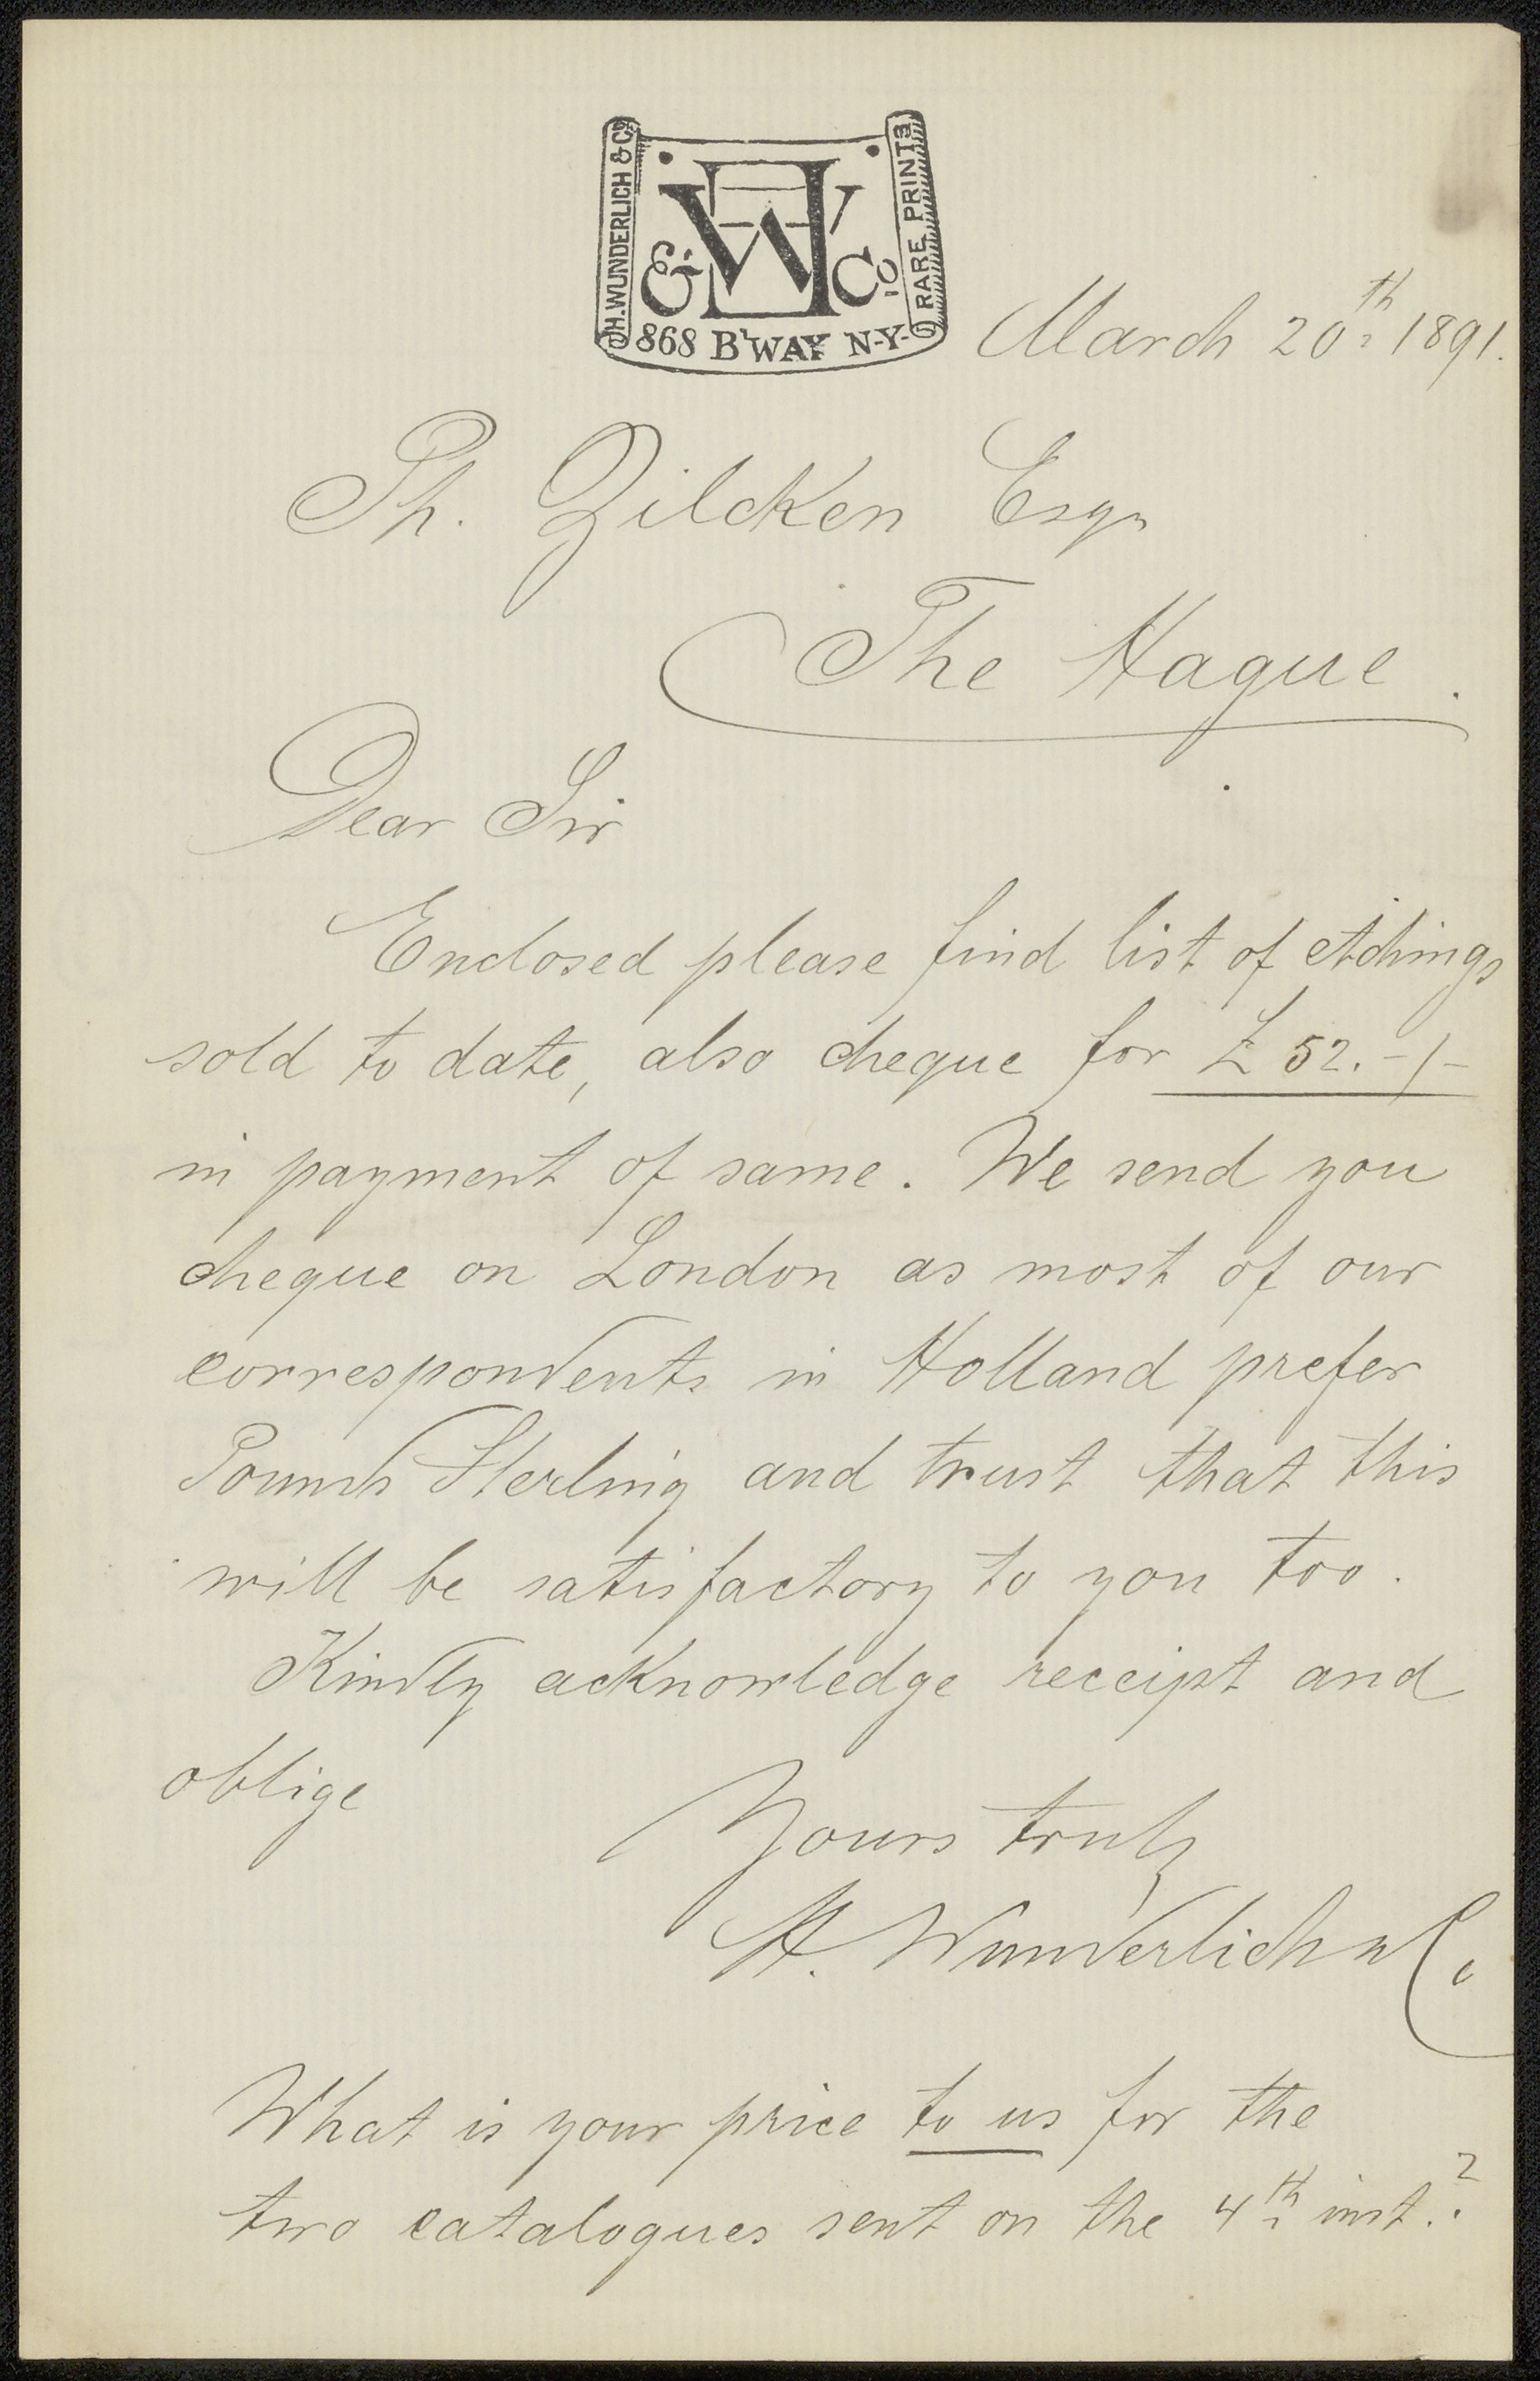 H. WUNDERLICH & Co.
RARE PRINTS
HW & Co
868 B'WAY N-Y-
March 20th 1891.
Ph. Zilcken Esqr
The Hague.
Dear Sir
Enclosed please find list of etchings
sold to date, also cheque for £ 52.-/-
in payment of same. We send you
cheque on London as most of our
correspondents in Holland prefer
Pounds Sterling and trust that this
will be satisfactory to you too.
Kindly acknowledge receipt and
oblige
Yours truly
H. Wunderlich & Co
What is your price to us for the
two catalogues sent on the 4th inst.?